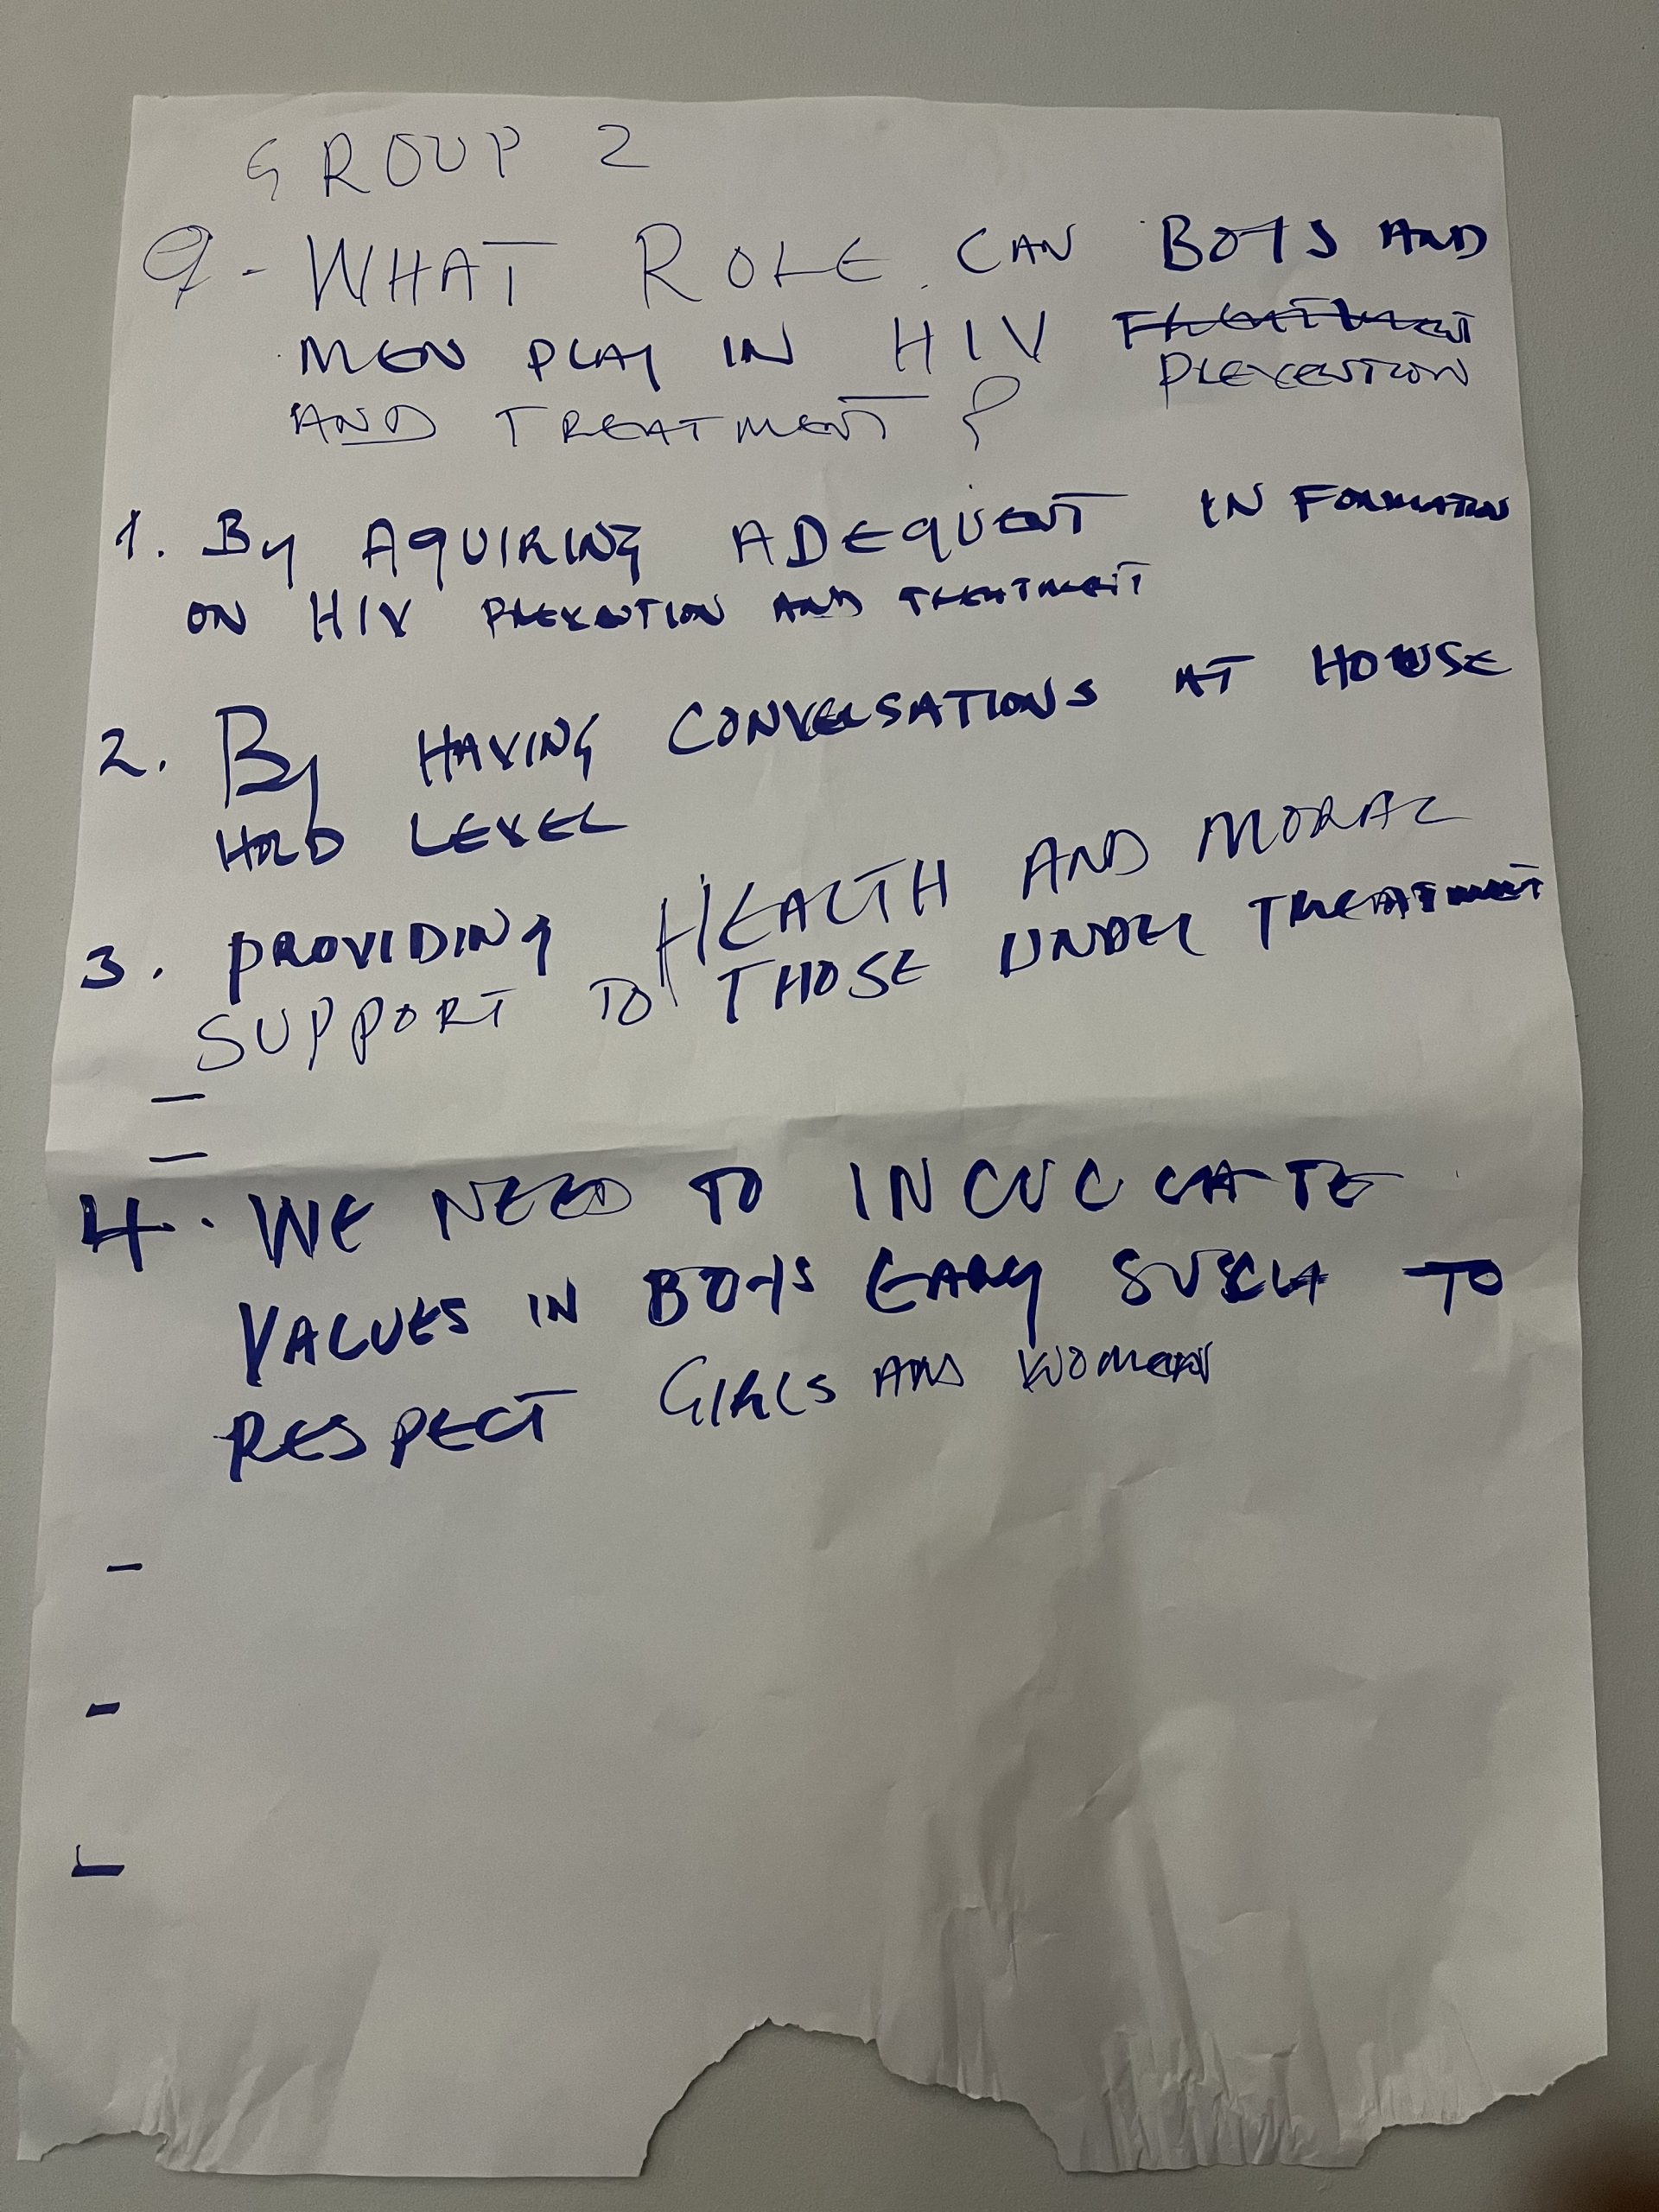 GROUP 2
Q - WHAT ROLE CAN BOYS AND
MEN PLAY IN HIV TREATMENT
PREVENTION
AND TREATMENT?
1. By AQUIRING ADEQUENT INFORMATION
ON HIV PREVENTION AND TREATMENT
2. By HAVING CONVERSATIONS AT HOUSE
HOLD LEVEL
3. PROVIDING HEALTH AND MORAL
SUPPORT TO THOSE UNDER TREATMENT
–
–
4. WE NEED TO INCULCATE
VALUES IN BOYS EARLY SUCH TO
RESPECT GIRLS AND WOMEN
–
–
–